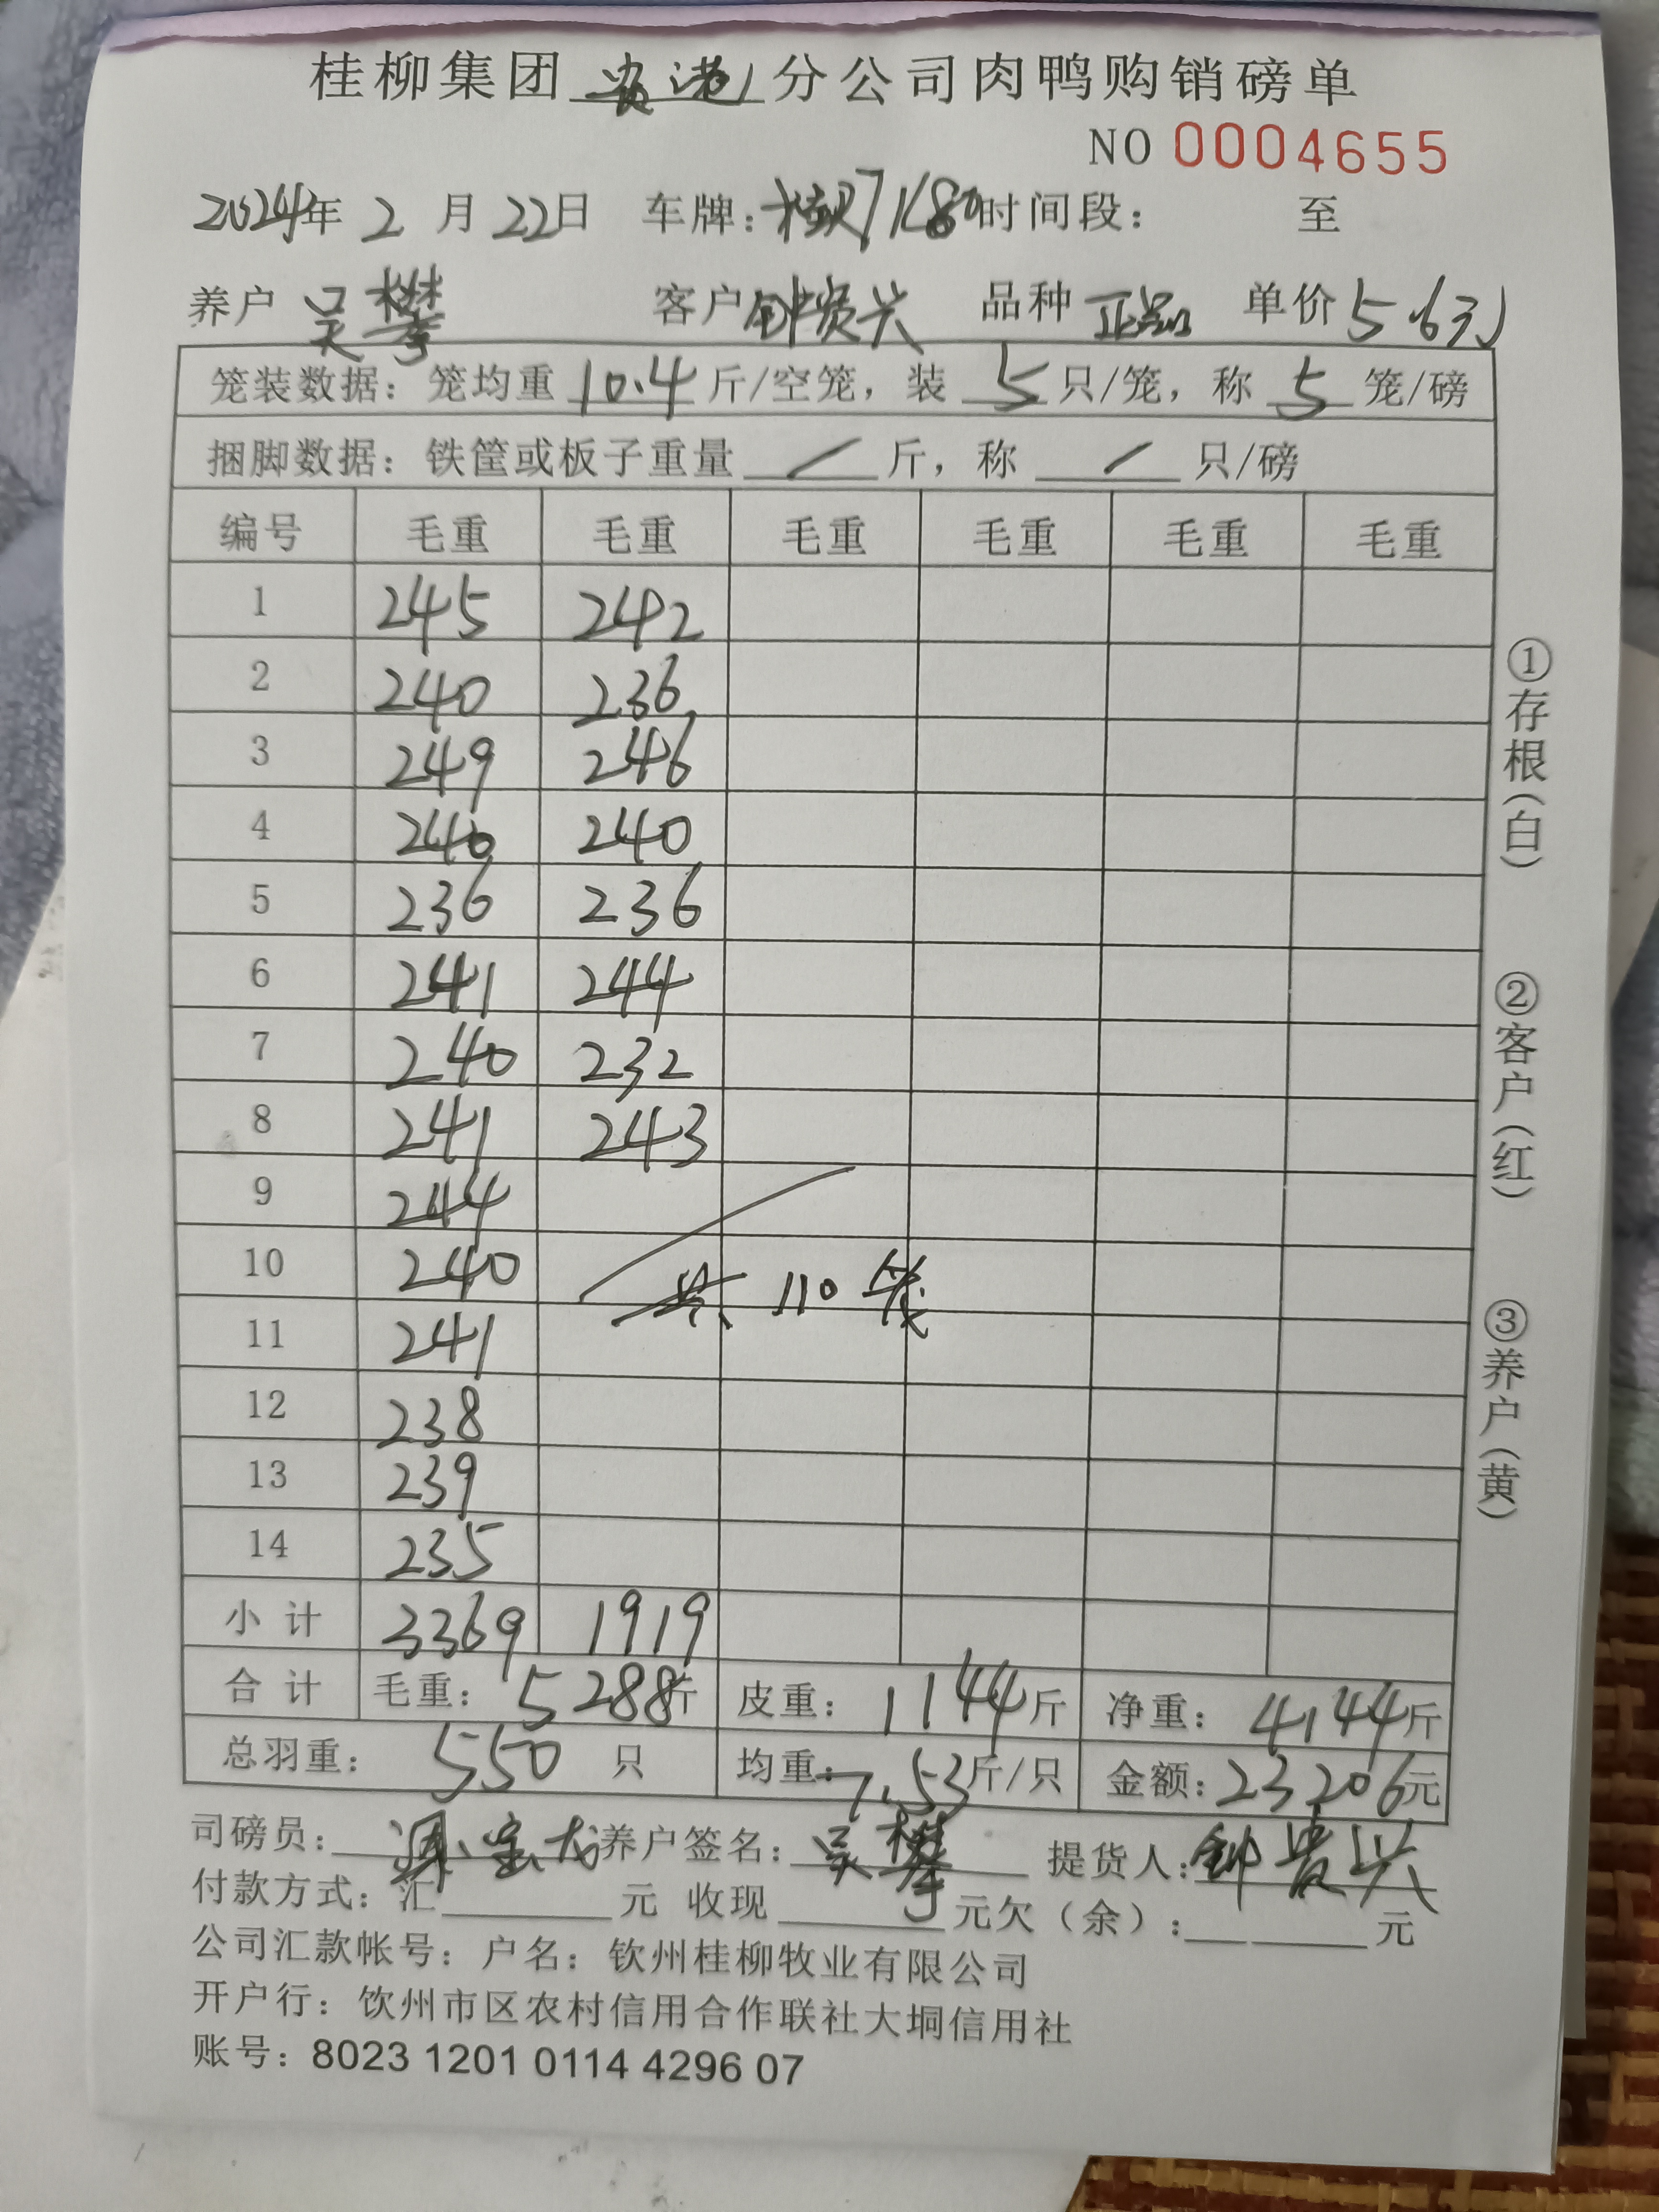 桂柳集团贵港分公司肉鸭购销磅单
NO 0004655
2024年 2 月 22日 车牌: 时间段: 至
养户 吴攀 客户 钟贵兴 品种 正品 单价 5.6元
笼装数据: 笼均重 10.4 斤/空笼, 装 5 只/笼, 称 5 笼/磅
捆脚数据: 铁筐或板子重量 / 斤, 称 / 只/磅
编号 毛重 毛重 毛重 毛重 毛重 毛重
1 245 242
2 240 236
3 249 246
4 240 240
5 236 236
6 241 244
7 240 232
8 241 243
9 244
10 240
共 110 笼
11 241
12 238
13 239
14 235
小计 3369 1919
合计 毛重: 5288斤 皮重: 1144斤 净重: 4144斤
总羽重: 550 只 均重: 7.53斤/只 金额: 23206元
司磅员: 养户签名: 吴攀 提货人: 钟贵兴
付款方式: 汇 元 收现 元欠(余): 元
公司汇款帐号: 户名: 钦州桂柳牧业有限公司
开户行: 饮州市区农村信用合作联社大垌信用社
账号: 8023 1201 0114 4296 07
①存根(白)
②客户(红)
③养户(黄)